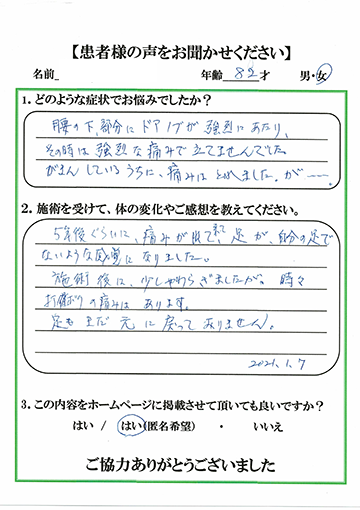 【患者様の声をお聞かせください】
名前_ 年齢 82才 男・女
1. どのような症状でお悩みでしたか？
腰の下部分にドアノブが強烈にあたり、
その時は強烈な痛みで立てませんでした
がまんしているうちに、痛みはとれました。が――。
2. 施術を受けて、体の変化やご感想を教えてください。
5年後ぐらいに、痛みが出て来て、足が、自分の足で
ないような感覚になりました。
施術後に、少しやわらぎましたが。時々
打撲の痛みはあります。
足もまだ元に戻ってありません。
2021.1.7
3. この内容をホームページに掲載させて頂いても良いですか？
はい / はい(匿名希望) ・ いいえ
ご協力ありがとうございました